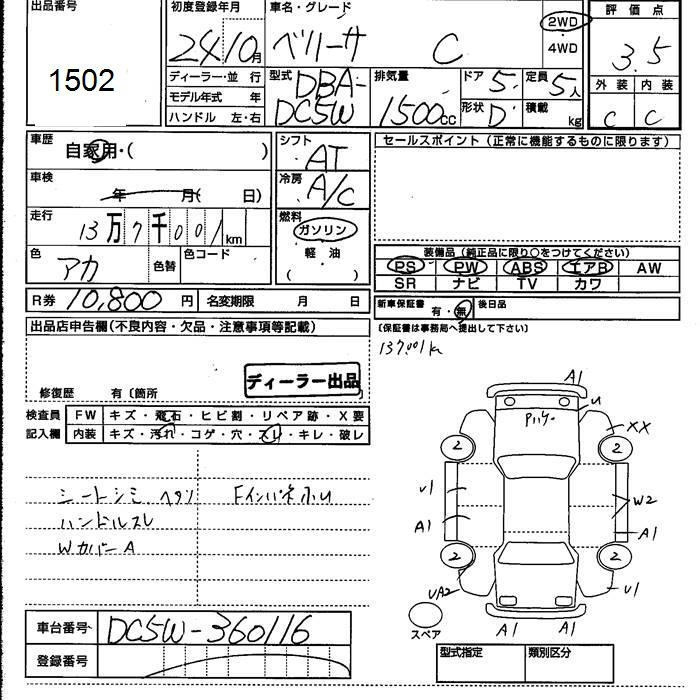 出品番号
1502
初度登録年月
24 10月
車名・グレード
ベリーサ C
2WD
・
4WD
評価点
3.5
外装 内装
C C
ディーラー・並 行
モデル年式 年
ハンドル 左・右
型式
DBA-
DC5W
排気量
1500cc
ドア 5
定員 5人
形状 D
積載 kg
車歴
自家用・( )
車検
年 月( 日)
走行
13万7千001km
色
アカ
色替
色コード
シフト
AT
冷房
A/C
燃料
ガソリン
・
軽・油
( )
セールスポイント (正常に機能するものに限ります)
装備品(純正品に限り○をつけてください)
PS PW ABS エアB AW
SR ナビ TV カワ
R券 10,800円 名変期限 月 日
新車保証書 有・無 後日品
(保証書は事務局へ提出して下さい)
137,001k
出品店申告欄(不良内容・欠品・注意事項等記載)
ディーラー出品
修復歴 有〔箇所
検査員
記入欄
FW キズ・飛石・ヒビ割・リペア跡・X要
内装 キズ・汚れ・コゲ・穴・スレ・キレ・破レ
シートシミ ヘタリ
ハンドルスレ
WカバーA
A1
U
XX
2 2
U1
A1
W2
A1
2 2
UA2
U1
A1 A1
スペア
車台番号 DC5W-360116
登録番号
型式指定 類別区分